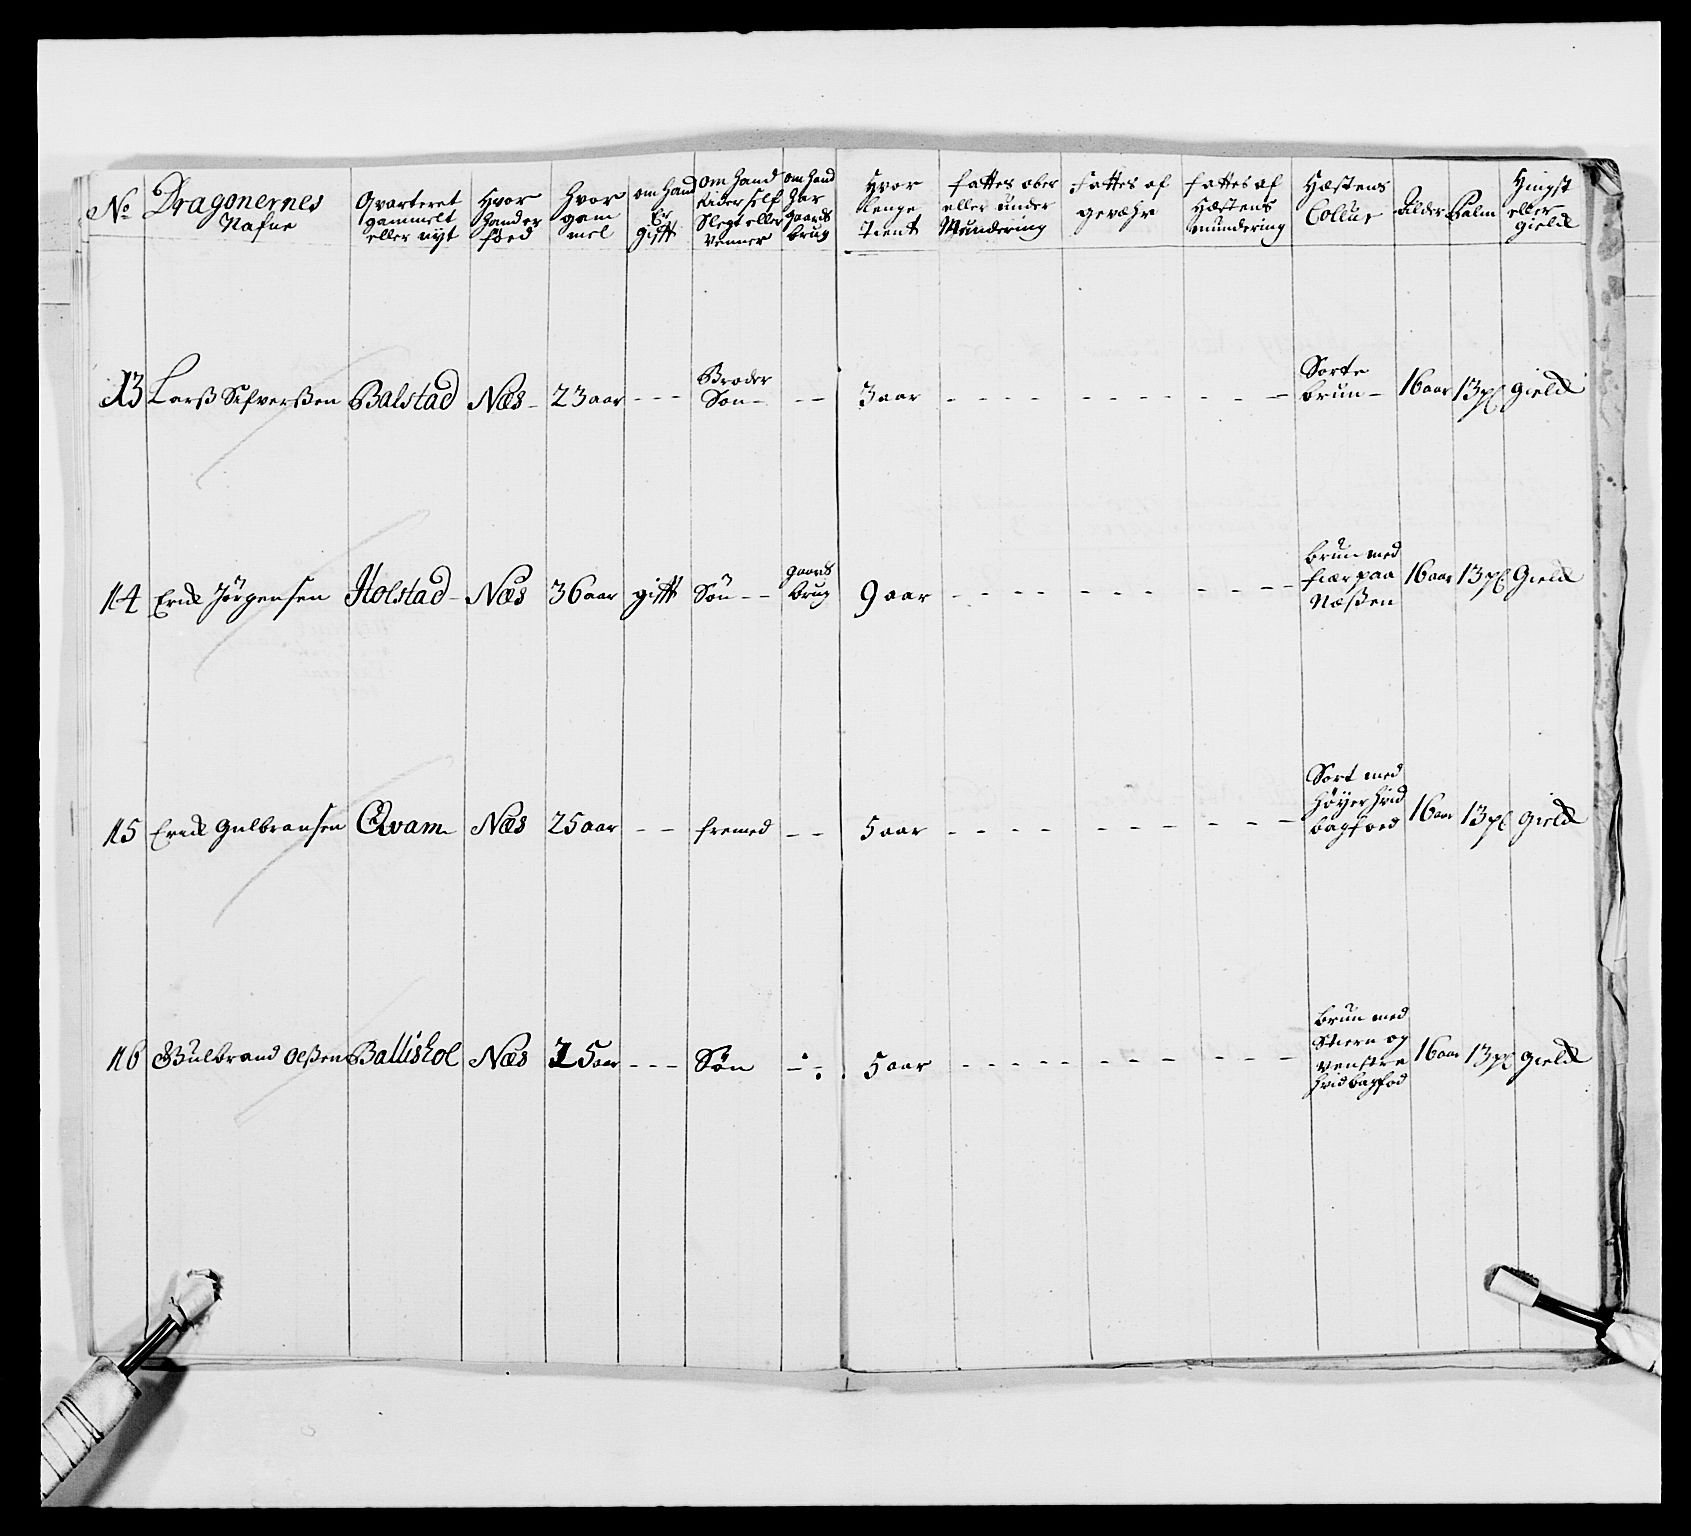 No
Dragonernes
Nafne
Qvarteret
gammelt
eller nyt
Hvor
hand er
föed
Hvor
gam
mel
om hand
Er
gift
om hand
rider self
Slegt eller
venner
om hand
har
gaards
brug
Hvor
lenge
tient
fattes ober
eller under
Mundering
fattes af
gevæhr
fattes af
Hæstens
mundering
Hæstens
Colleur
alder
Palm
Hingst
eller
gield
13 Larß Sifverßen Balstad Næs - 23 aar - - - Broder
Son - - - 3 aar - - - - Sorte
brun - 16 aar 13 pl gield
14 Erick Jörgensen Holstad - Næs 36 aar gift Sön - - gaards
brug 9 aar - - - - brun med
fiær paa
Næßen 16 aar 13 pl Gield
15 Erick Gulbransen Qvam Næs 25 aar - - fremed - - 5 aar - - - - Sort med
höyer hvid
bagfoed 16 aar 13 pl gield
16 Gulbrand Olßen Ballishol Næs 25 aar - - - Sön - - 5 aar - - - - brun med
Stiern og
venstre
hvid bagfod 16 aar 13 pl gield